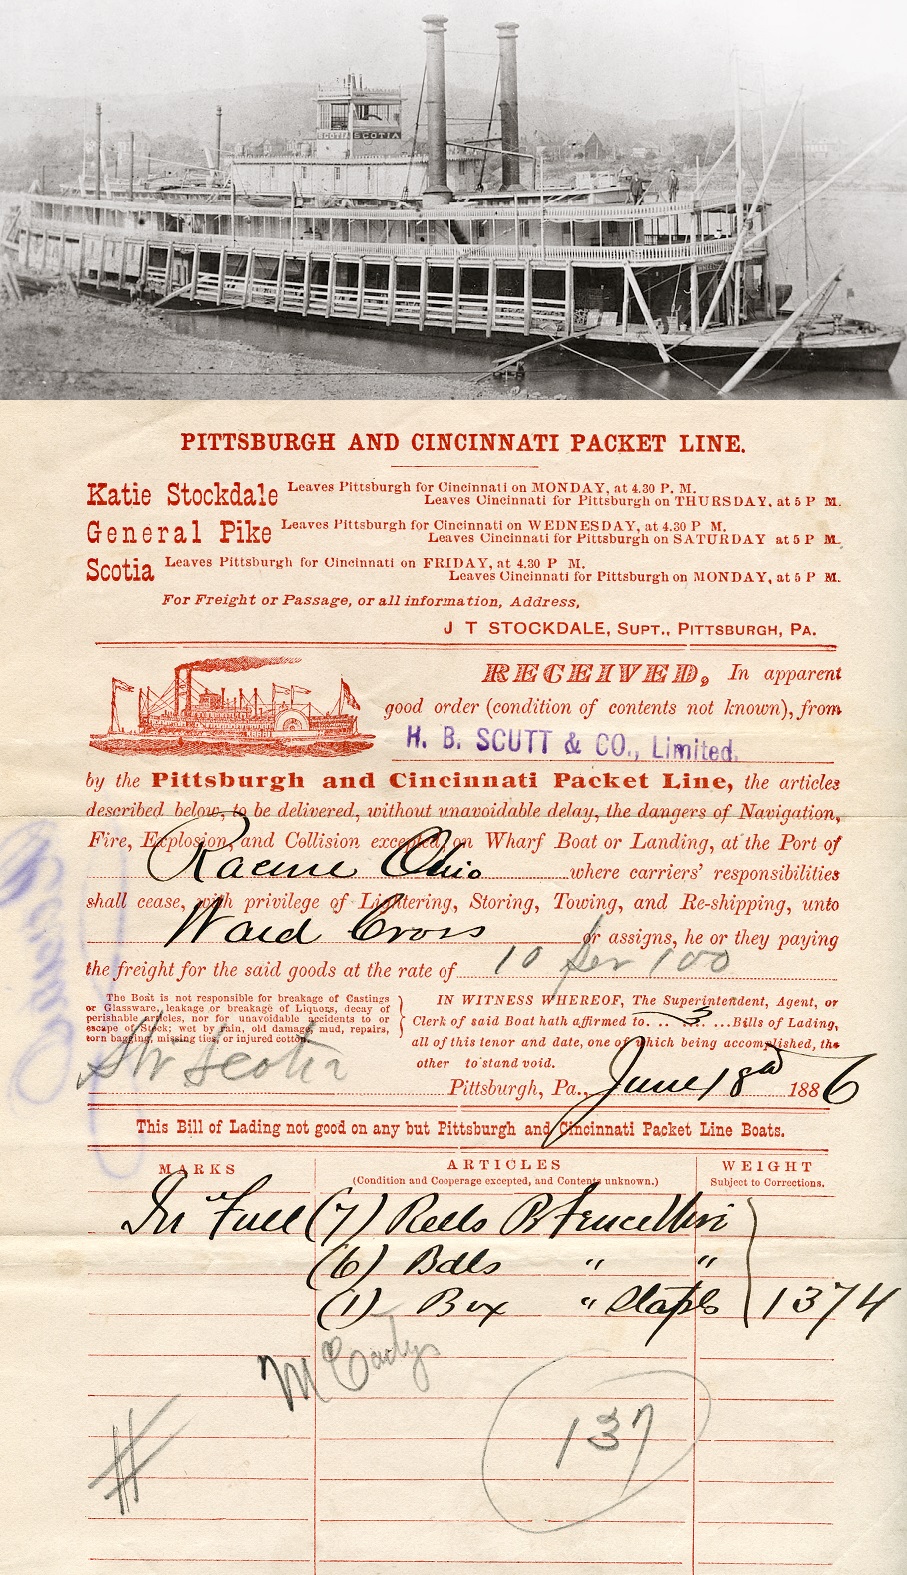 SCOTIA SCOTIA
PITTSBURGH AND CINCINNATI PACKET LINE.
Katie Stockdale Leaves Pittsburgh for Cincinnati on MONDAY, at 4.30 P. M.
Leaves Cincinnati for Pittsburgh on THURSDAY, at 5 P M.
General Pike Leaves Pittsburgh for Cincinnati on WEDNESDAY, at 4.30 P M.
Leaves Cincinnati for Pittsburgh on SATURDAY at 5 P M.
Scotia Leaves Pittsburgh for Cincinnati on FRIDAY, at 4.30 P M.
Leaves Cincinnati for Pittsburgh on MONDAY, at 5 P M.
For Freight or Passage, or all information, Address,
J T STOCKDALE, SUPT., PITTSBURGH, PA.
RECEIVED, In apparent
good order (condition of contents not known), from
H. B. SCUTT & CO., Limited.
by the Pittsburgh and Cincinnati Packet Line, the articles
described below, to be delivered, without unavoidable delay, the dangers of Navigation,
Fire, Explosion, and Collision excepted, on Wharf Boat or Landing, at the Port of
Racine Ohio where carriers' responsibilities
shall cease, with privilege of Lightering, Storing, Towing, and Re-shipping, unto
Ward Cross or assigns, he or they paying
the freight for the said goods at the rate of 10 per 100
The Boat is not responsible for breakage of Castings
or Glassware, leakage or breakage of Liquors, decay of
perishable articles, nor for unavoidable accidents to or
escape of Stock; wet by rain, old damage, mud, repairs,
torn bagging, missing ties, or injured cotton.
Str Scotia
IN WITNESS WHEREOF, The Superintendent, Agent, or
Clerk of said Boat hath affirmed to 3 Bills of Lading,
all of this tenor and date, one of which being accomplished, the
other to stand void.
Pittsburgh, Pa., June 18th 1886
This Bill of Lading not good on any but Pittsburgh and Cincinnati Packet Line Boats.
MARKS ARTICLES WEIGHT
(Condition and Cooperage excepted, and Contents unknown.) Subject to Corrections.
In Full (7) Reels B Fence Wire
(6) Bdls " "
(1) Box " Staples 1374
McCadys
137
#